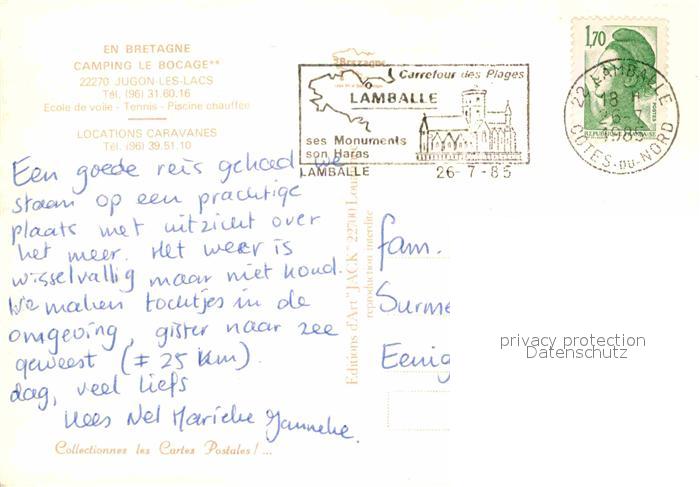 EN BRETAGNE
CAMPING LE BOCAGE**
22270 JUGON-LES-LACS
Tél. (96) 31.60.16
Ecole de voile - Tennis - Piscine chauffée
LOCATIONS CARAVANES
Tél. (96) 39.51.10
Een goede reis gehad we
staan op een prachtige
plaats met uitzicht over
het meer. Het weer is
wisselvallig maar niet koud.
We maken tochtjes in de
omgeving, gister naar zee
geweest (± 25 km).
dag, veel liefs
Kees Nel Marieke Janneke.
Collectionnez les Cartes Postales ! ...
Bretagne
Carrefour des Plages
LAMBALLE
ses Monuments
son Haras
LAMBALLE
26-7-85
1,70
POSTES
REPUBLIQUE FRANÇAISE
22 LAMBALLE
18 H
26-7
1985
COTES-DU-NORD
Editions d'Art "JACK" 22700 Lou
reproduction interdite
fam.
Surme
Eenig
privacy protection
Datenschutz